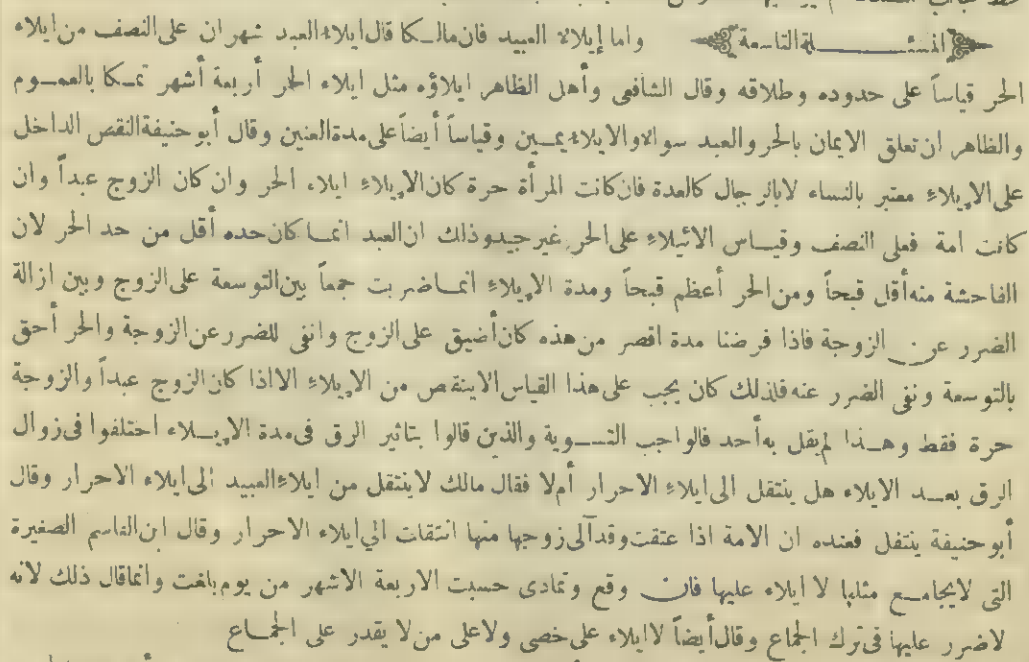 المسئلة التاسعة واما إيلاء العبيد فان مالكا قال ايلاء العبد شهران على النصف من ايلاء
الحر قياساً على حدوده وطلاقه وقال الشافعى وأهل الظاهر ايلاؤه مثل ايلاء الحر أربعة أشهر تمسكا بالعموم
والظاهر ان تعلق الايمان بالحر والعبد سواء والايلاء يمين وقياساً أيضاً على مدة العنين وقال أبو حنيفة النقص الداخل
على الإيلاءِ معتبر بالنساء لا بالرجال كالعدة فان كانت المرأة حرة كان الإيلاءِ ايلاء الحر وان كان الزوج عبداً وان
كانت امة فعلى النصف وقياس الائيلاءِ على الحر غير جيد وذلك ان العبد انما كان حده أقل من حد الحر لان
الفاحشة منه أقل قبحاً ومن الحر أعظم قبحاً ومدة الإيلاءِ انما ضربت جمعاً بين التوسعة على الزوج وبين ازالة
الضرر عن الزوجة فاذا فرضنا مدة اقصر من هذه كان أضيق على الزوج وانفى للضرر عن الزوجة والحر أحق
بالتوسعة ونفى الضرر عنه فلذلك كان يجب على هذا القياس الا ينقص من الإيلاءِ الا اذا كان الزوج عبداً والزوجة
حرة فقط وهذا لم يقل به أحد فالواجب التسوية والذين قالوا بتاثير الرق فى مدة الإيلاء اختلفوا فى زوال
الرق بعد الايلاء هل ينتقل الى ايلاءِ الاحرار أم لا فقال مالك لا ينتقل من ايلاءِ العبيد الى ايلاء الاحرار وقال
أبو حنيفة ينتقل فعنده ان الامة اذا عتقت وقد آلى زوجها منها انتقلت الي ايلاء الاحرار وقال ابن القاسم الصغيرة
التى لا يجامع مثلها لا ايلاء عليها فان وقع وتمادى حسبت الاربعة الاشهر من يوم بلغت وانما قال ذلك لانه
لاضرر عليها فى ترك الجماع وقال أيضاً لا ايلاء على خصى ولا على من لا يقدر على الجماع